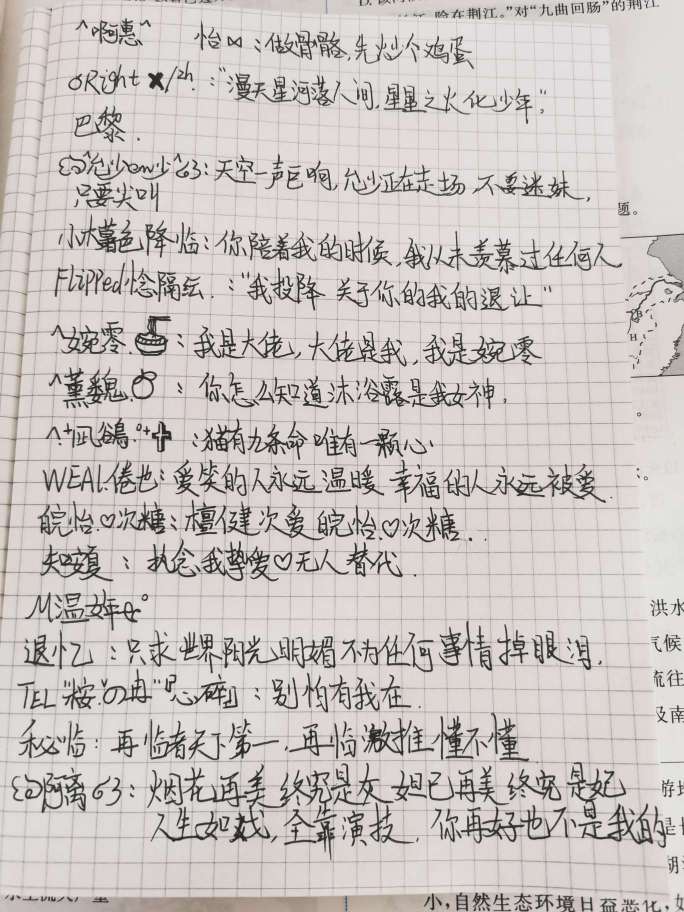 荆江，险在荆江。”对“九曲回肠”的荆江
^啊惠^ 怡⋈：做骨骼，先炒个鸡蛋
σRight ✘/2h.：“漫天星河落人间，星星之火化少年”，
巴黎.
天空一声巨响，允少正在走场，不要迷妹，
只要尖叫
小木暮色降临：你陪着我的时候，我从未羡慕过任何人
Flipped念隔纭.：“我投降 关于你的我的退让”
题。
^婉零.：我是大佬，大佬是我，我是婉零
^薰魏.：你怎么知道沐浴露是我女神，
：猫有九条命 唯有一颗心.
WEAL.倦也：爱笑的人永远温暖 幸福的人永远被爱.
皖怡.♡次糖：檀健次爱皖怡.♡次糖..
执念我挚爱♡无人替代.
M温
洪水
退忆：只求世界阳光明媚不为任何事情掉眼泪.
气候
TEL“桉.の冉”『心碎』：别怕有我在.
流往
及南
秘临：再临者天下第一，再临激推懂不懂
阿离σ3：烟花再美终究是灰 妲己再美终究是妃
人生如戏，全靠演技. 你再好也不是我的
小，自然生态环境日益恶化，如